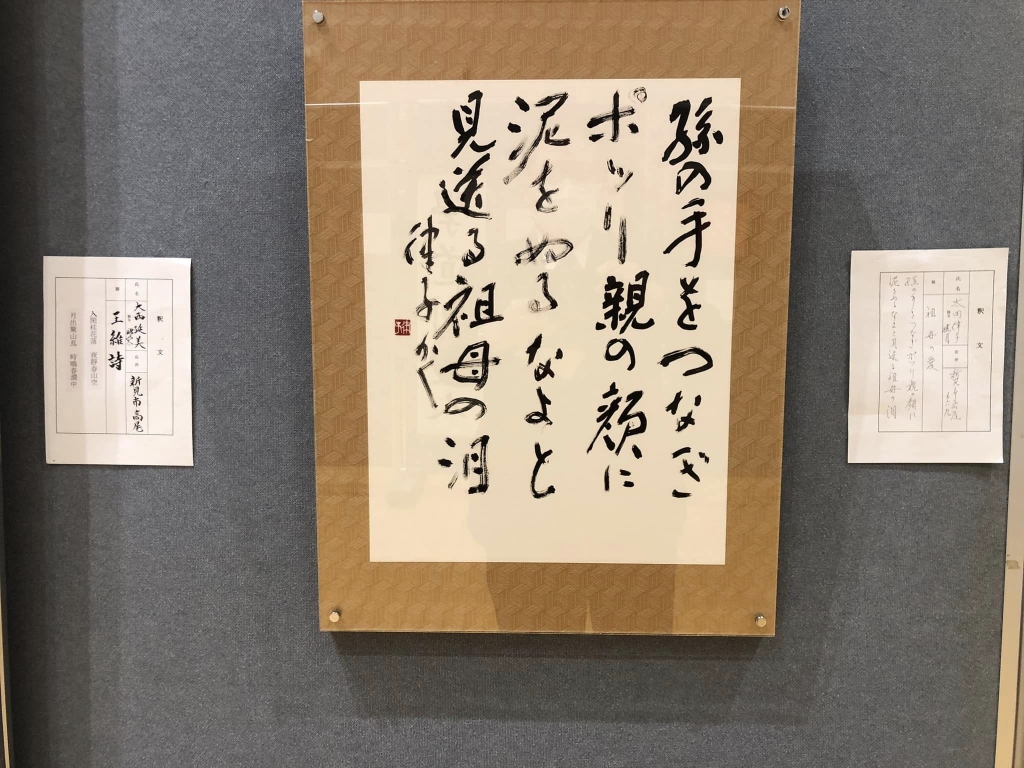 孫の手をつなぎ
ポッリ親の顔に
泥をぬるなよと
見送る祖母の泪
律子かく
釈文
氏名
題
祖母の
孫の手をつなぎポッリ親の顔に
泥をぬるなよと見送る祖母の泪
釈文
氏名
大西延美
新見市高尾
題
王維詩
人閑桂花落 夜静春山空
月出驚山鳥 時鳴春澗中